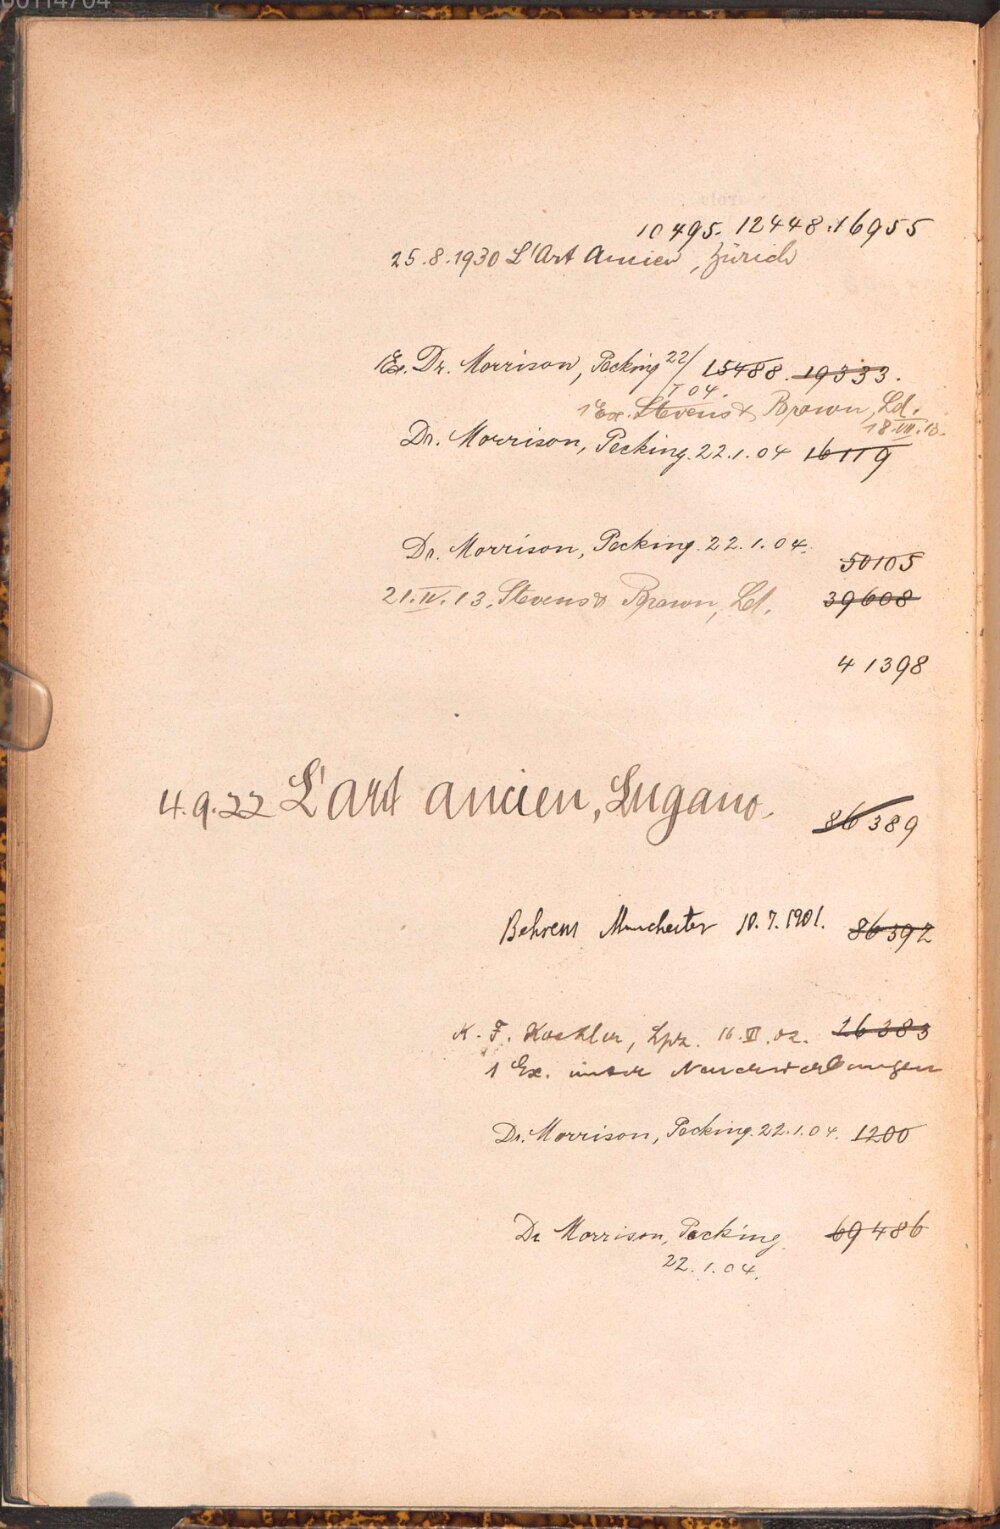 00114704
10495. 12448. 16955
25.8.1930 L'Art Ancien, Zürich
1 Ex. Dr. Morrison, Pecking 22/I 04. 15488. 19333.
1 Ex. Stevens & Brown, Ld. 18.VII.13.
Dr. Morrison, Pecking. 22.1.04 16119
Dr. Morrison, Pecking. 22.1.04. 50105
21.IV.13. Stevens & Brown, Ld. 39608
41398
4.9.22 L'art ancien, Lugano. 86389
Behrens Manchester 10.7.1901. 86392
K. F. Koehler, Lpz. 16.VI.02. 26383
1 Ex. unter Neuerwerbungen
Dr. Morrison, Pecking. 22.1.04. 1200
Dr Morrison, Pecking 69486
22.1.04.